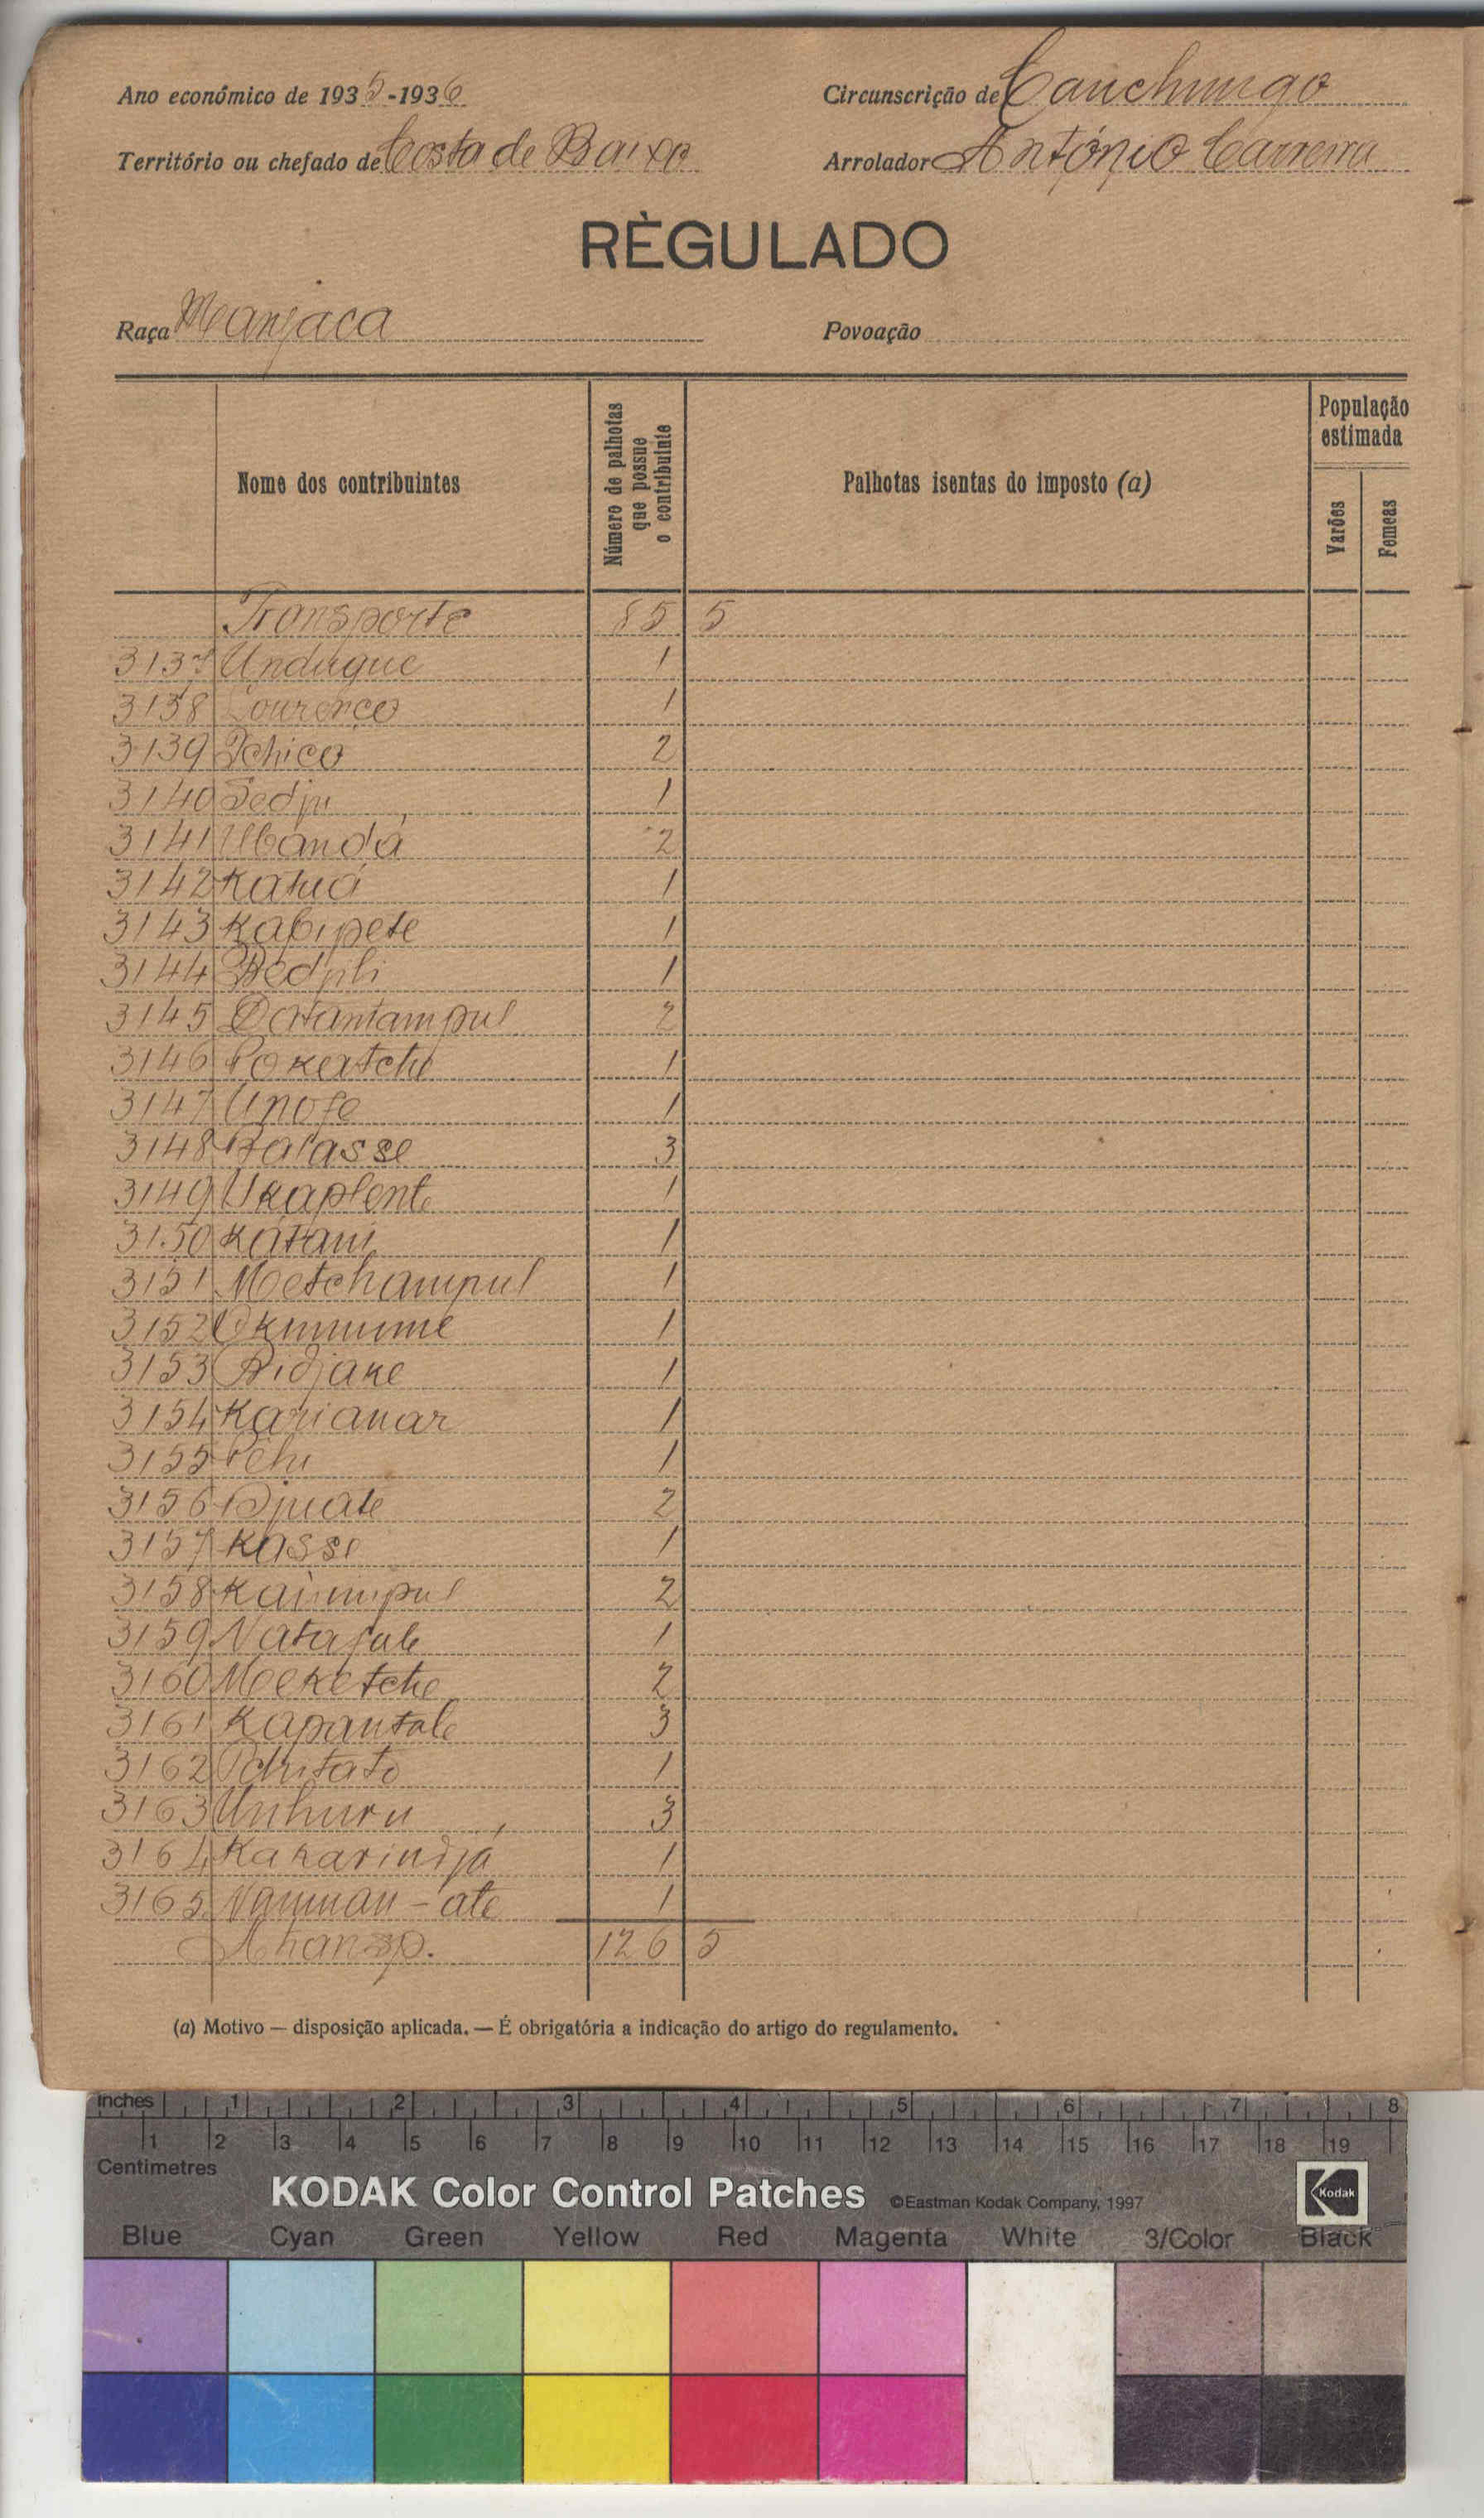 Ano económico de 1935-1936 Circunscrição de Canchungo
Território ou chefado de Costa de Baixo Arrolador António Carreira
RÈGULADO
Raça Manjaca Povoação
Nome dos contribuintes Número de palhotas que possue o contribuinte Palhotas isentas do imposto (a) População estimada Varões Femeas
Transporte 85 5
3137 Undugue 1
3138 Lourenço 1
3139 Tchico 2
3140 Sedju 1
3141 Ubandá 2
3142 Katuá 1
3143 Kabipete 1
3144 1
3145 Datantampul 2
3146 Pokatche 1
3147 Unofe 1
3148 Balasse 3
3149 Ukaplente 1
3150 Katani 1
3151 Metchampul 1
3152 1
3153 Bidjake 1
3154 Karianar 1
3155 1
3156 Djuate 2
3157 Kasse 1
3158 Kaimpul 2
3159 Natafale 1
3160 Meketche 2
3161 Kapantale 3
3162 1
3163 Unhuru 3
3164 Kakarindjá 1
3165 Namuan-ate 1
A transp. 126 5
(a) Motivo — disposição aplicada. — É obrigatória a indicação do artigo do regulamento.
Inches 1 2 3 4 5 6 7 8
1 2 3 4 5 6 7 8 9 10 11 12 13 14 15 16 17 18 19
Centimetres
KODAK Color Control Patches ©Eastman Kodak Company, 1997 Kodak
Blue Cyan Green Yellow Red Magenta White 3/Color Black